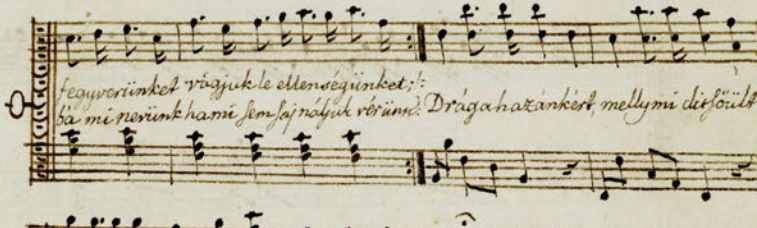 fegyverünket vágjuk le ellenségünket;:
ba mi nerünk hami sem sajnáljuk vérünk: Drága hazánkért, melly mi ditsőült